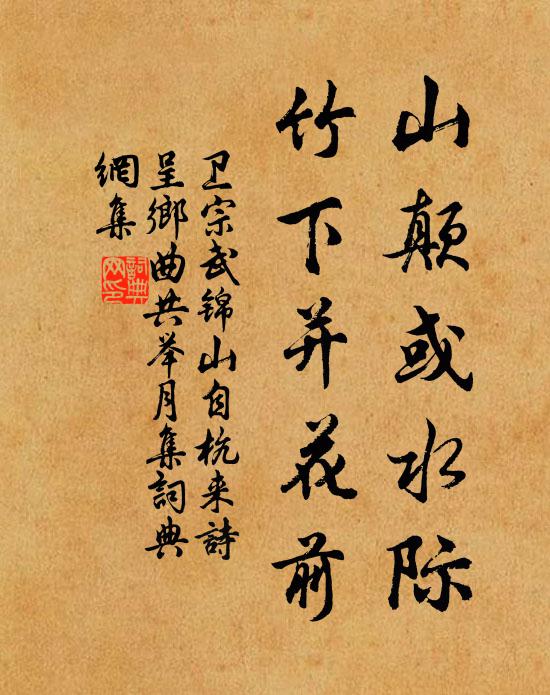 山颠或水际
竹下并花前
卫宗武锦山自杭来詩
呈鄉曲共举月集詞典
網集
詞典網印